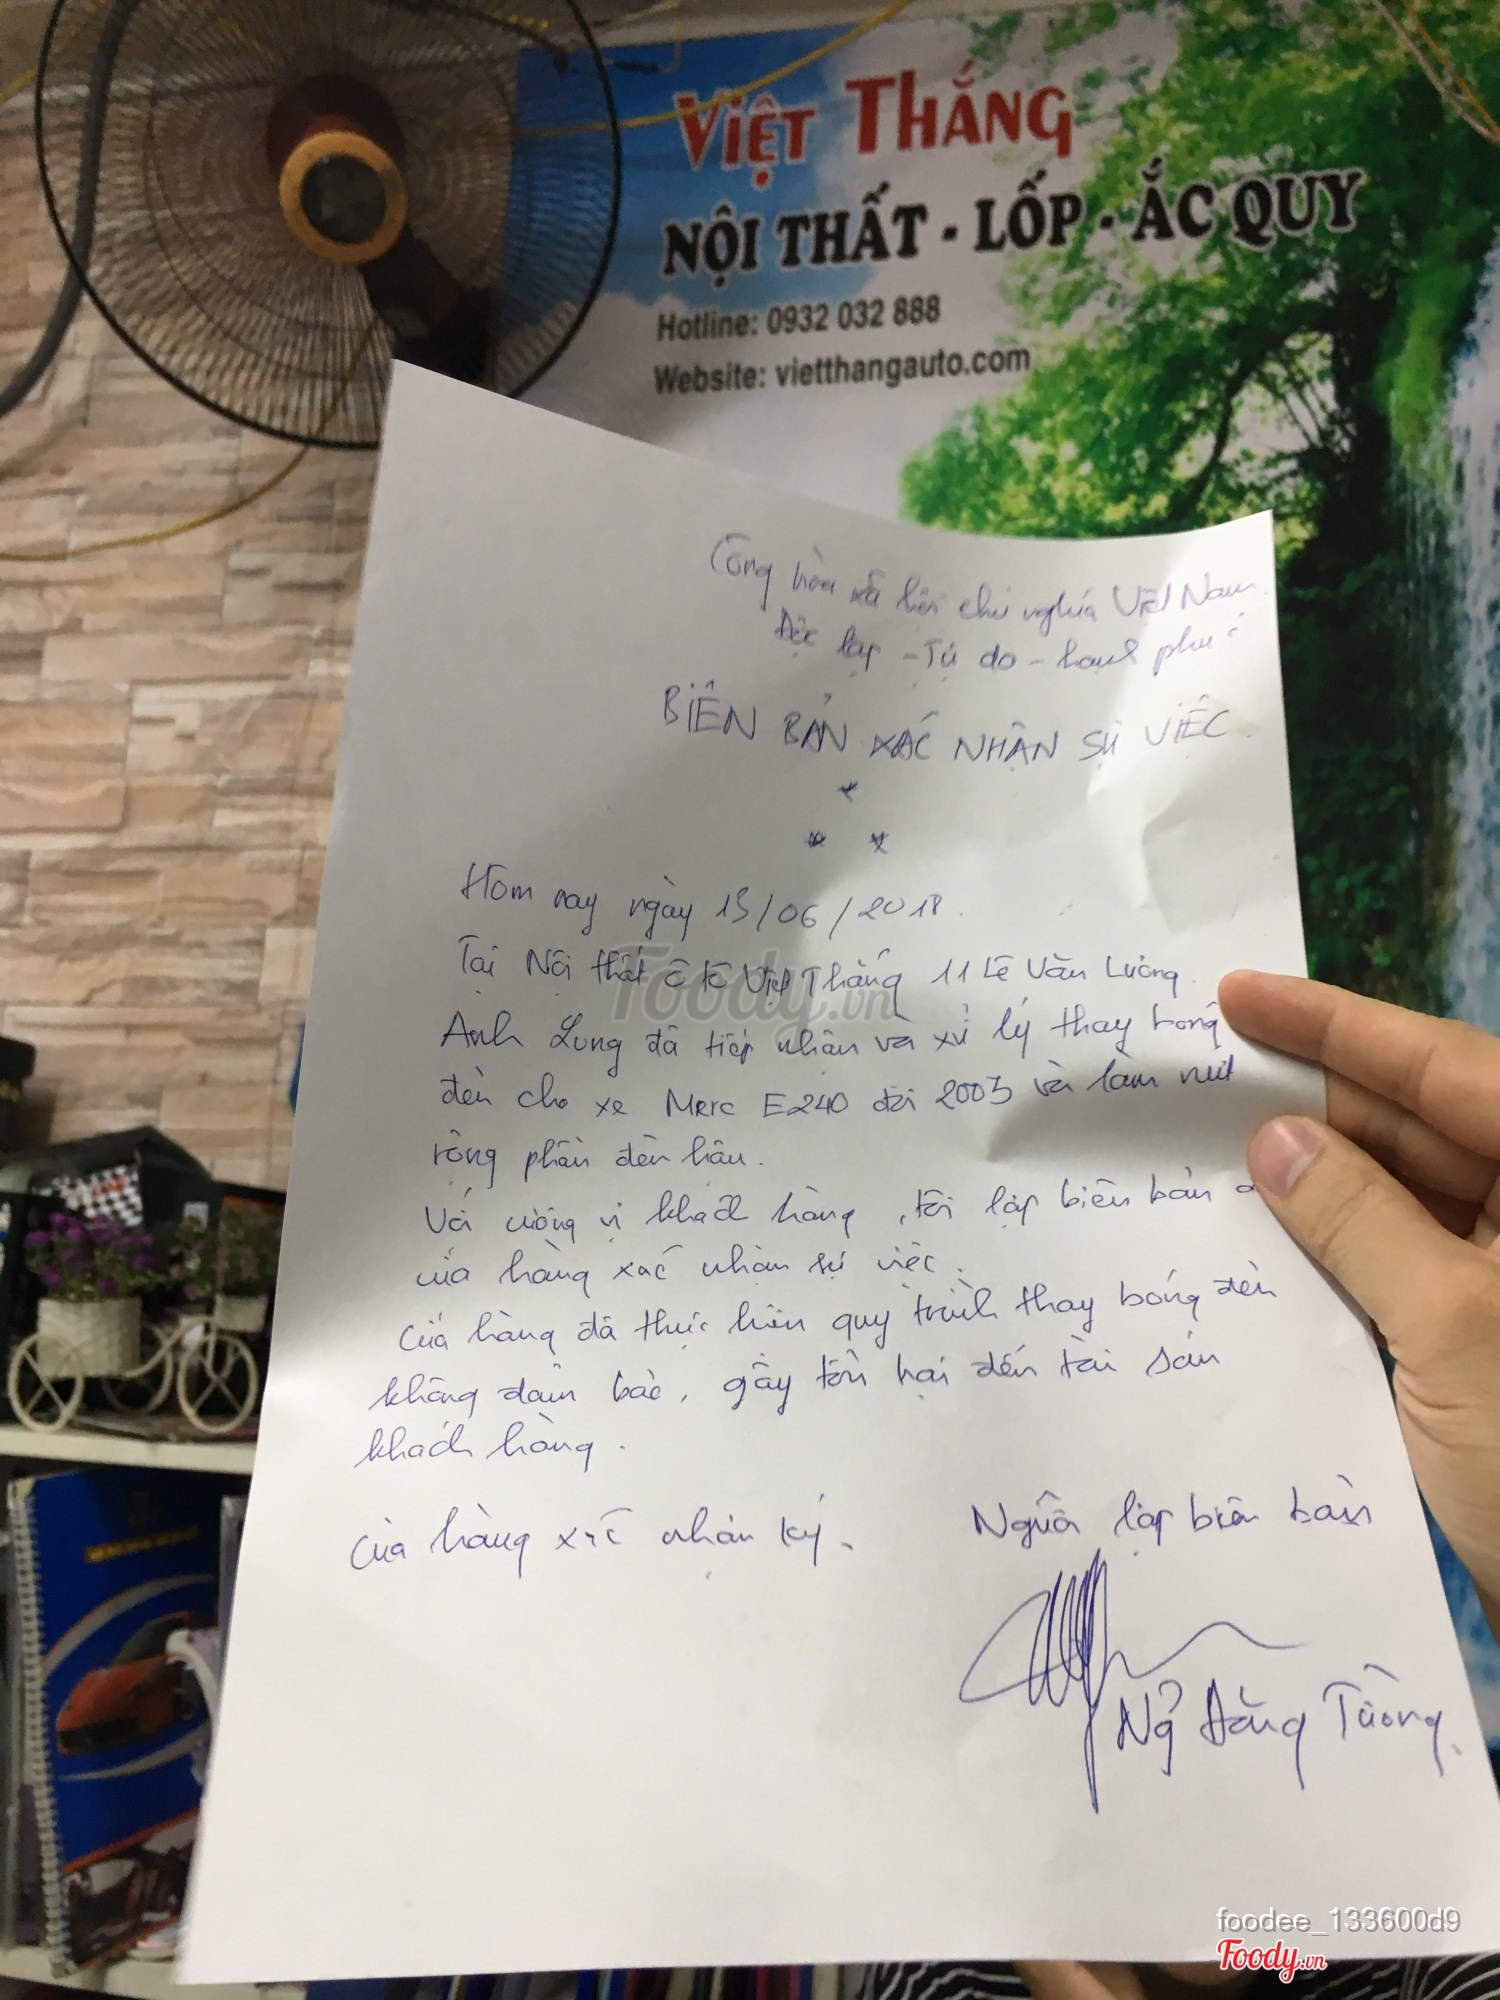 VIỆT THẮNG
NỘI THẤT - LỐP - ẮC QUY
Hotline: 0932 032 888
Website: vietthangauto.com
Cộng hòa xã hội chủ nghĩa Việt Nam
Độc lập - Tự do - hạnh phúc
BIÊN BẢN XÁC NHẬN SỰ VIỆC
Hôm nay ngày 15/06/2018.
Tại Nội thất ô tô Việt Thắng 11 Lê Văn Lương.
Anh Long đã tiếp nhận và xử lý thay bóng
đèn cho xe Merc E240 đời 2003 và làm nứt
rộng phần đèn hậu.
Với cương vị khách hàng, tôi lập biên bản
cửa hàng xác nhận sự việc.
Cửa hàng đã thực hiện quy trình thay bóng đèn
không đảm bảo, gây tổn hại đến tài sản
khách hàng.
Cửa hàng xác nhận ký.
Người lập biên bản
Đăng Tường
Foody.vn
foodee_133600d9
Foody.vn